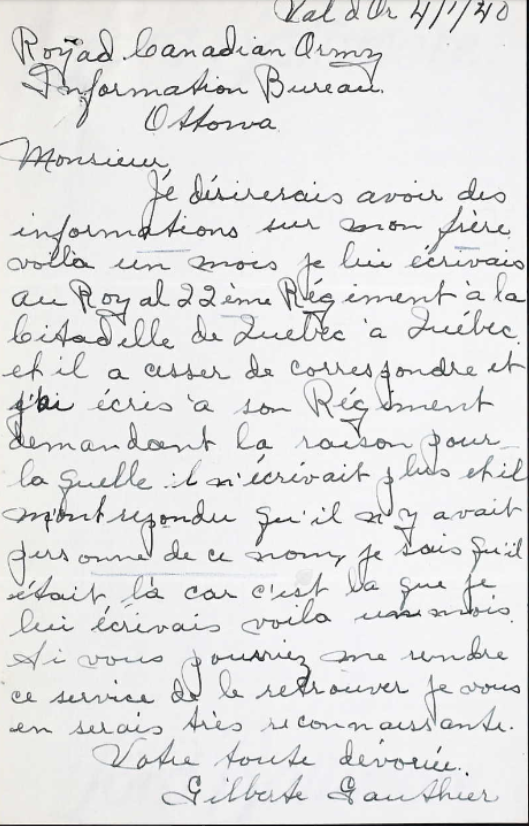 Val d'Or 4/1/40
Royad Canadian Army
Information Bureau.
Ottowa
Monsieur,
Jé désirerais avoir des
informations sur mon frère
voilà un mois je lui écrivais
au Royal 22ème Régiment à la
Citadelle de Quebec à Québec.
et il a cesser de correspondre et
j'ai écris à son Régiment
demandant la raison pour
la quelle il n'écrivait plus et il
m'ont repondu qu'il n'y avait
personne de ce nom, je sais qu'il
était là car c'est la que je
lui écrivais voila un mois.
Si vous pourriez me rendre
ce service de le retrouver je vous
en serais très reconnaissante.
Votre toute dévouée.
Gilberte Gauthier